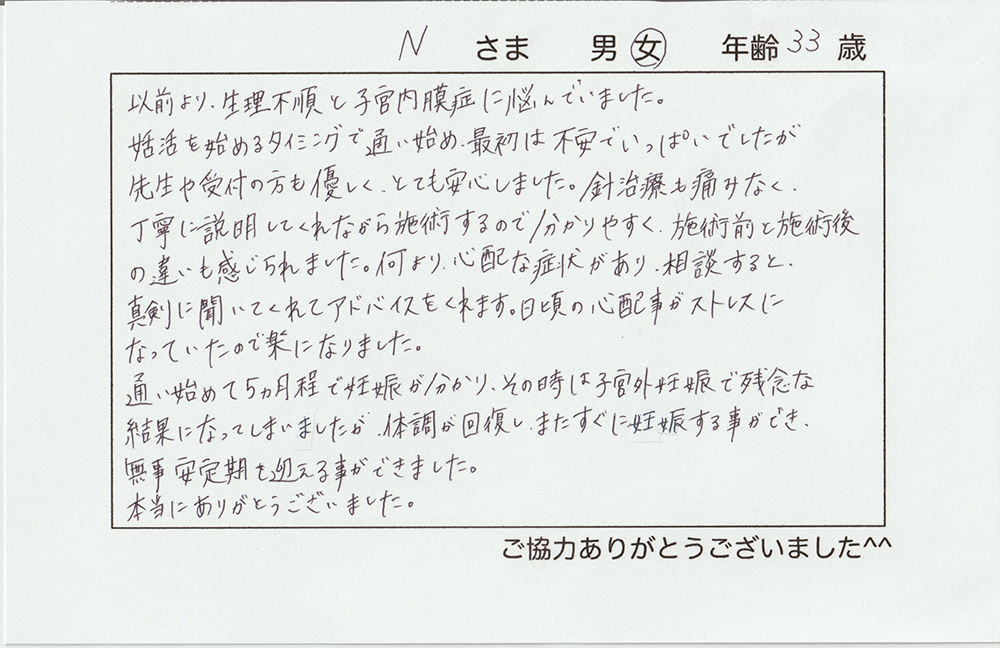 N さま 男 女 年齢 33 歳
以前より、生理不順と子宮内膜症に悩んでいました。
妊活を始めるタイミングで通い始め、最初は不安でいっぱいでしたが
先生や受付の方も優しく、とても安心しました。針治療も痛みなく、
丁寧に説明してくれながら施術するので分かりやすく、施術前と施術後
の違いも感じられました。何より、心配な症状があり、相談すると、
真剣に聞いてくれてアドバイスをくれます。日頃の心配事がストレスに
なっていたので楽になりました。
通い始めて5ヵ月程で妊娠が分かり、その時は子宮外妊娠で残念な
結果になってしまいましたが、体調が回復し、またすぐに妊娠する事ができ、
無事安定期を迎える事ができました。
本当にありがとうございました。
ご協力ありがとうございました^^